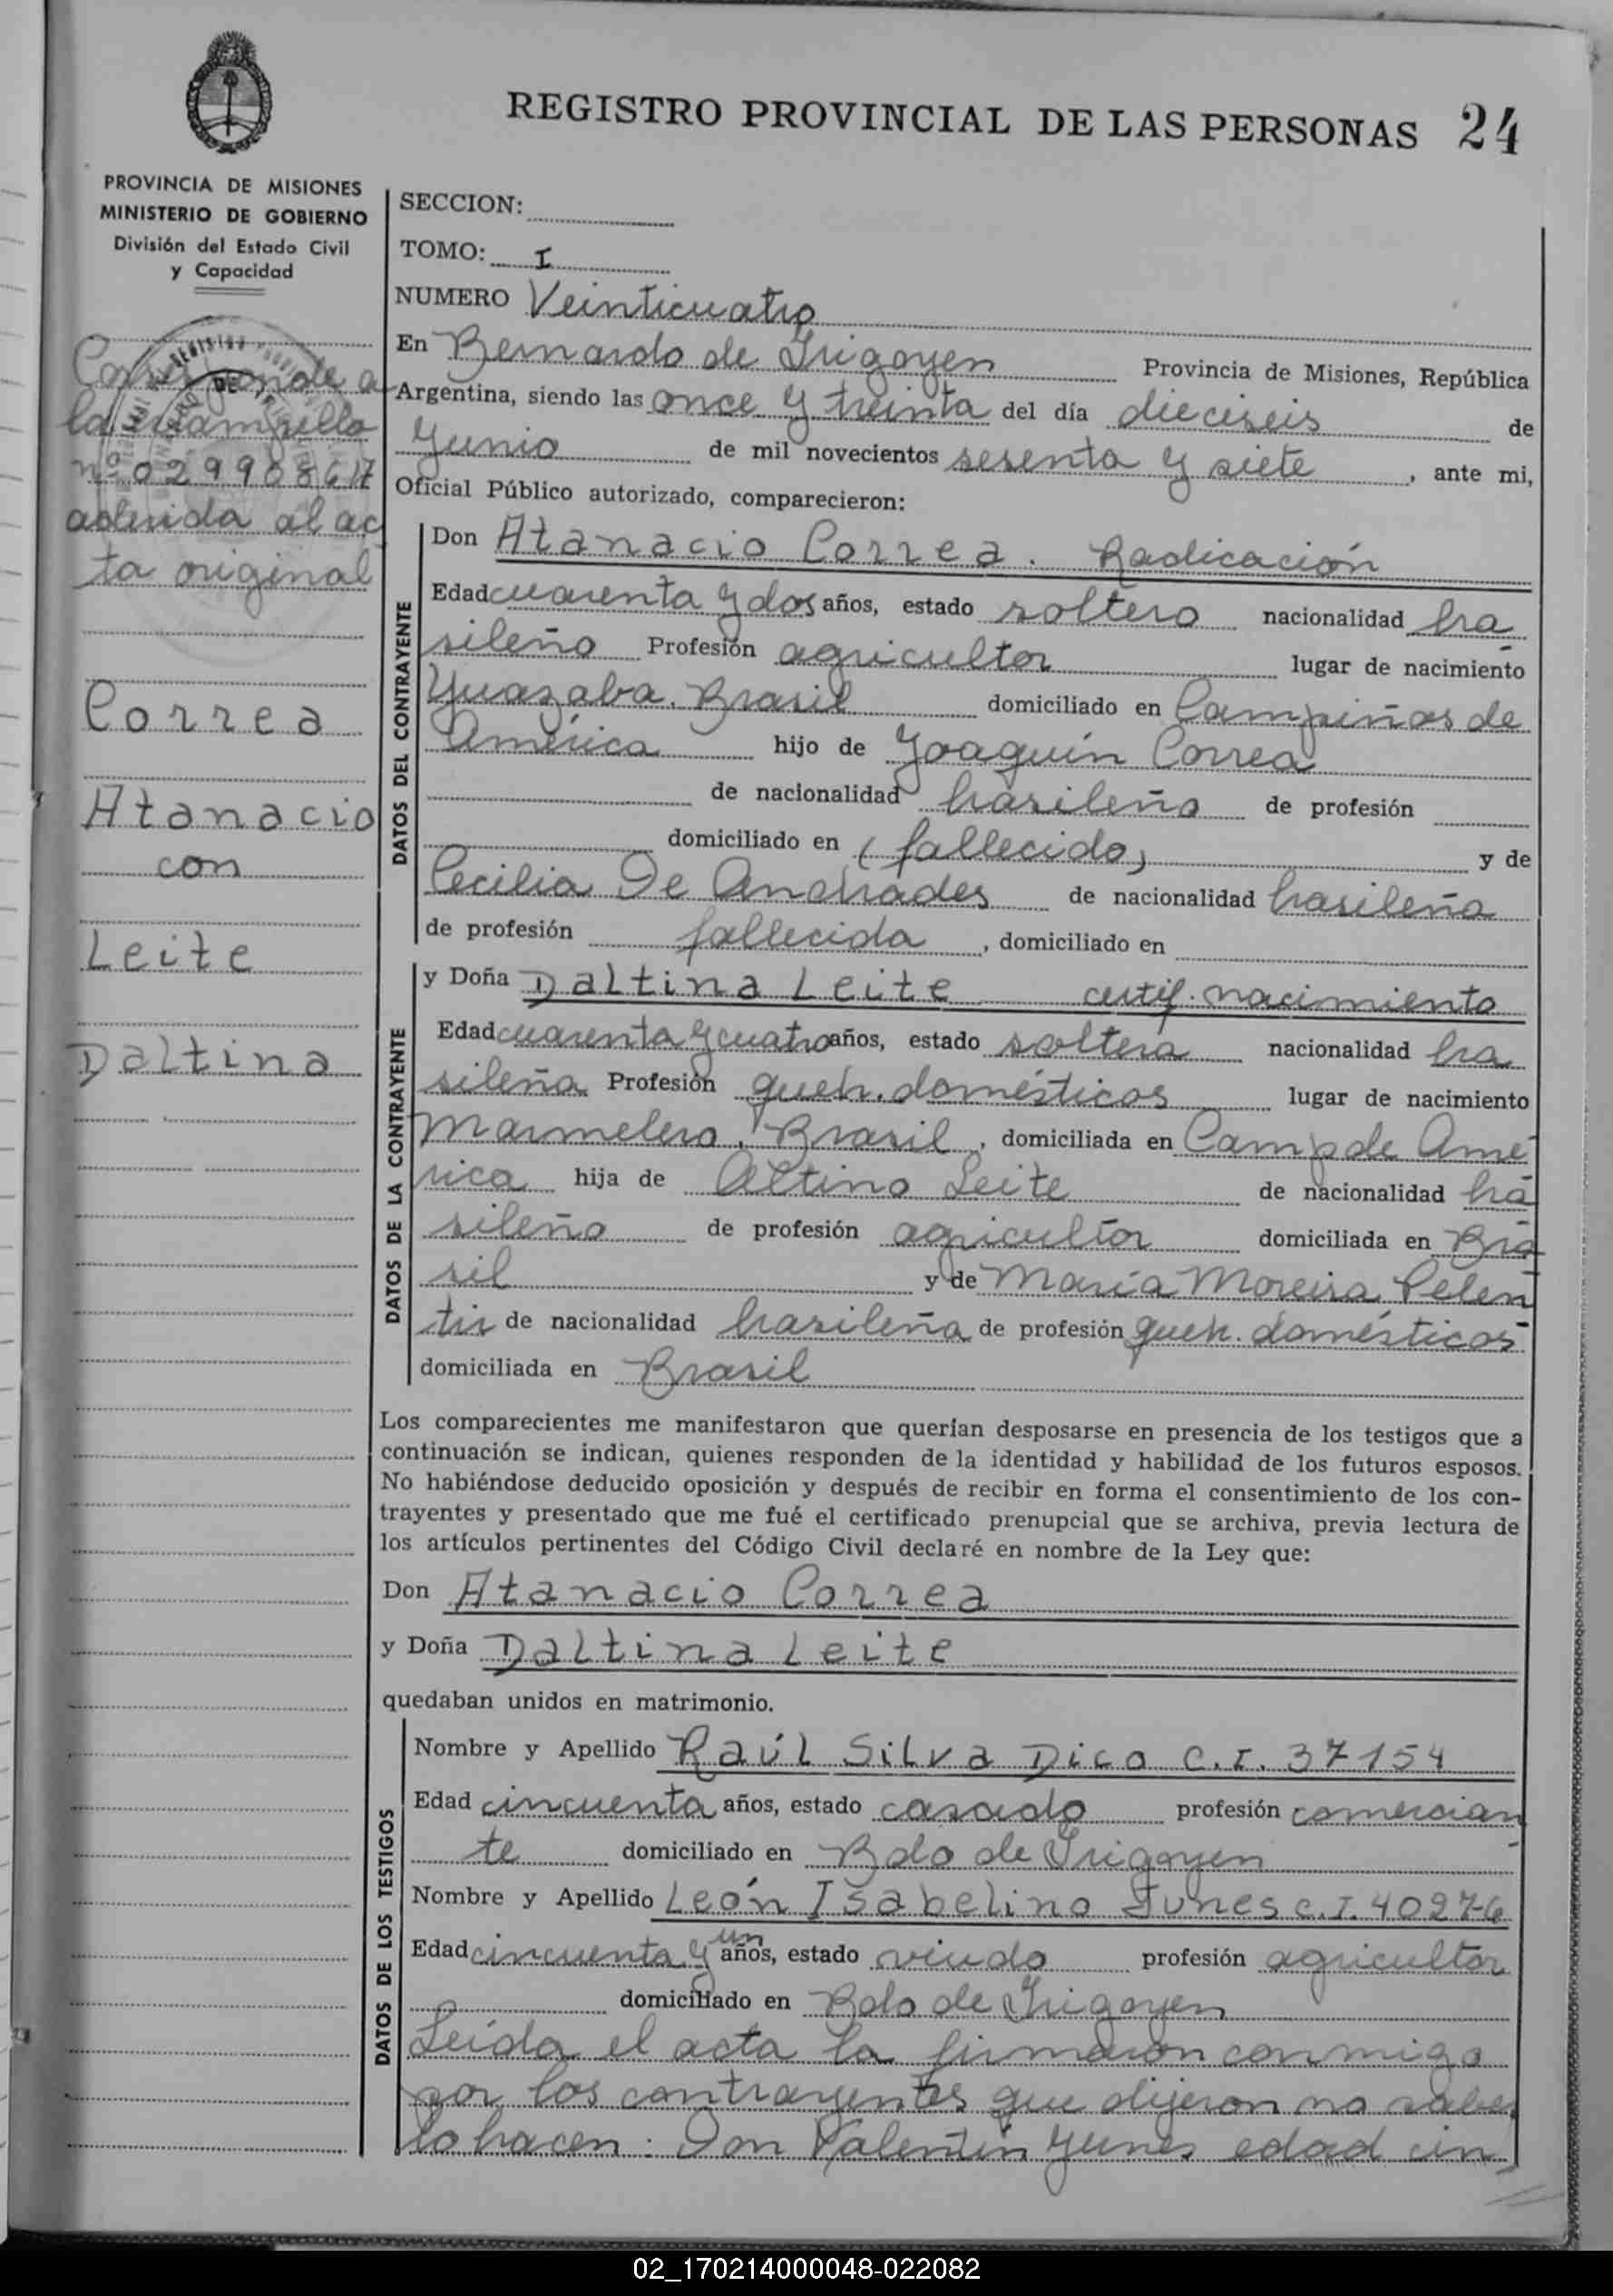 REGISTRO PROVINCIAL DE LAS PERSONAS 24
PROVINCIA DE MISIONES
MINISTERIO DE GOBIERNO
División del Estado Civil
y Capacidad
Corresponde a
la estampilla
nº 02990864
adherida al ac
ta original
Correa
Atanacio
con
Leite
Daltina
SECCION:
TOMO: I
NUMERO Veinticuatro
En Bernardo de Irigoyen Provincia de Misiones, República
Argentina, siendo las once y treinta del día dieciseis de
Junio de mil novecientos sesenta y siete, ante mi,
Oficial Público autorizado, comparecieron:
DATOS DEL CONTRAYENTE
Don Atanacio Correa. Radicación
Edad cuarenta y dos años, estado soltero nacionalidad bra
sileño Profesión agricultor lugar de nacimiento
Yuazaba. Brasil domiciliado en Campiñas de
América hijo de Joaquín Correa
de nacionalidad brasileño de profesión
domiciliado en (fallecido) y de
Cecilia De Andrades de nacionalidad brasileña
de profesión fallecida, domiciliado en
DATOS DE LA CONTRAYENTE
y Doña Daltina Leite certif. nacimiento
Edad cuarenta y cuatro años, estado soltera nacionalidad bra
sileña Profesión queh. domésticos lugar de nacimiento
Marmelero, Brasil, domiciliada en Camp de Amé
rica hija de Altino Leite de nacionalidad bra
sileño de profesión agricultor domiciliada en Bra
sil y de María Moreira Pelen
tir de nacionalidad brasileña de profesión queh. domésticos
domiciliada en Brasil
Los comparecientes me manifestaron que querían desposarse en presencia de los testigos que a
continuación se indican, quienes responden de la identidad y habilidad de los futuros esposos.
No habiéndose deducido oposición y después de recibir en forma el consentimiento de los con-
trayentes y presentado que me fué el certificado prenupcial que se archiva, previa lectura de
los artículos pertinentes del Código Civil declaré en nombre de la Ley que:
Don Atanacio Correa
y Doña Daltina Leite
quedaban unidos en matrimonio.
DATOS DE LOS TESTIGOS
Nombre y Apellido Raúl Silva Dico C.I. 37154
Edad cincuenta años, estado casado profesión comercian
te domiciliado en Bdo de Irigoyen
Nombre y Apellido León Isabelino Yunes C.I. 40276
Edad cincuenta y un años, estado viudo profesión agricultor
domiciliado en Bdo de Irigoyen
Leída el acta la firmaron conmigo
por los contrayentes que dijeron no saber
lo hacen: Don Valentín Yunes edad cin
02_170214000048-022082